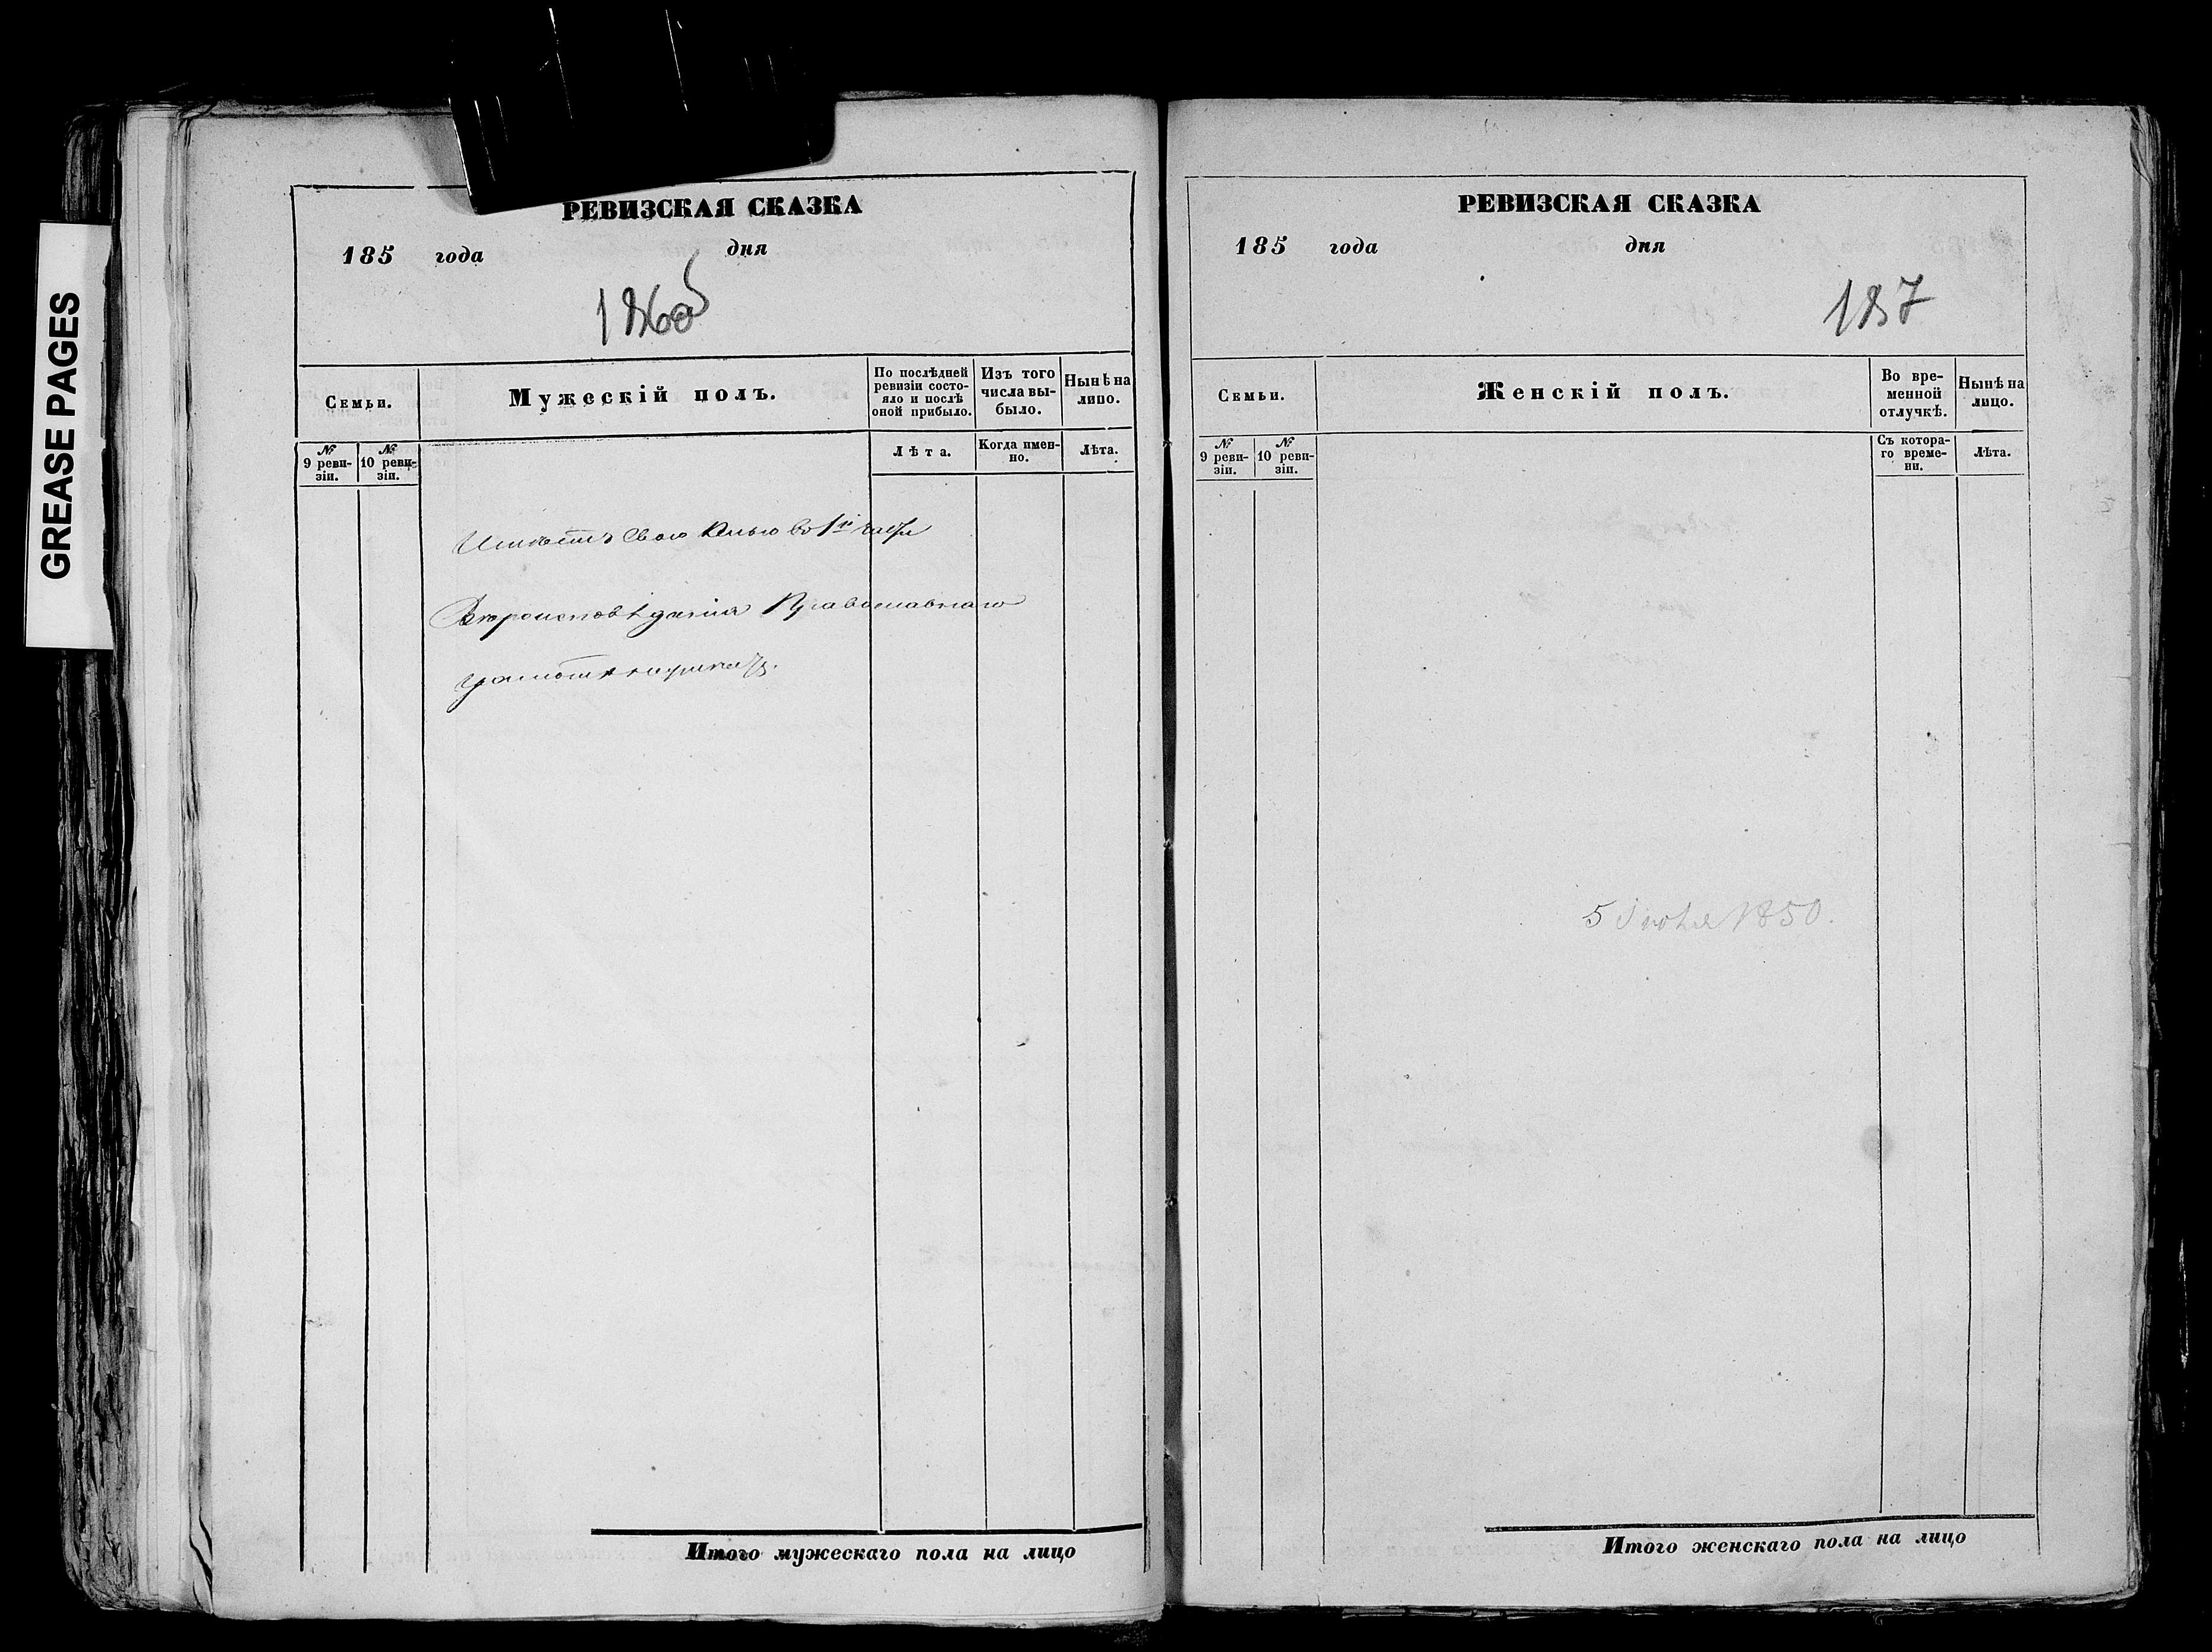 GREASE PAGES
РЕВИЗСКАЯ СКАЗКА
185 года дня
186об
Семьи.
Мужескій полъ.
По послѣдней ревизіи состояло и послѣ оной прибыло.
Изъ того числа выбыло.
Нынѣ на лицо.
№ 9 ревизіи.
№ 10 ревизіи.
Лѣта.
Когда именно.
Лѣта.
Имѣетъ свою
Вѣроисповѣданія Православнаго
грамотѣ
Итого мужескаго пола на лицо
РЕВИЗСКАЯ СКАЗКА
185 года дня
187
Семьи.
Женскій полъ.
Во временной отлучкѣ.
Нынѣ на лицо.
№ 9 ревизіи.
№ 10 ревизіи.
Съ котораго времени.
Лѣта.
5 1850.
Итого женскаго пола на лицо